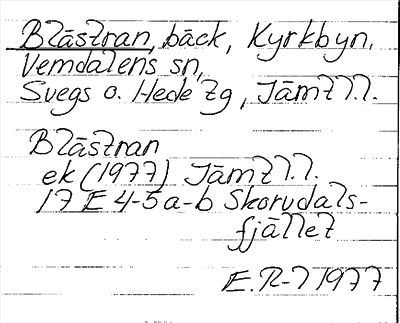 Blåstran, bäck, Kyrkbyn,
Vemdalens sn,
Svegs o. Hede tg, Jämtl.l.
Blåstran
ek (1977) Jämtl.l.
17 E 4-5 a-b Skorvdals-
fjället
E.R-l 1977